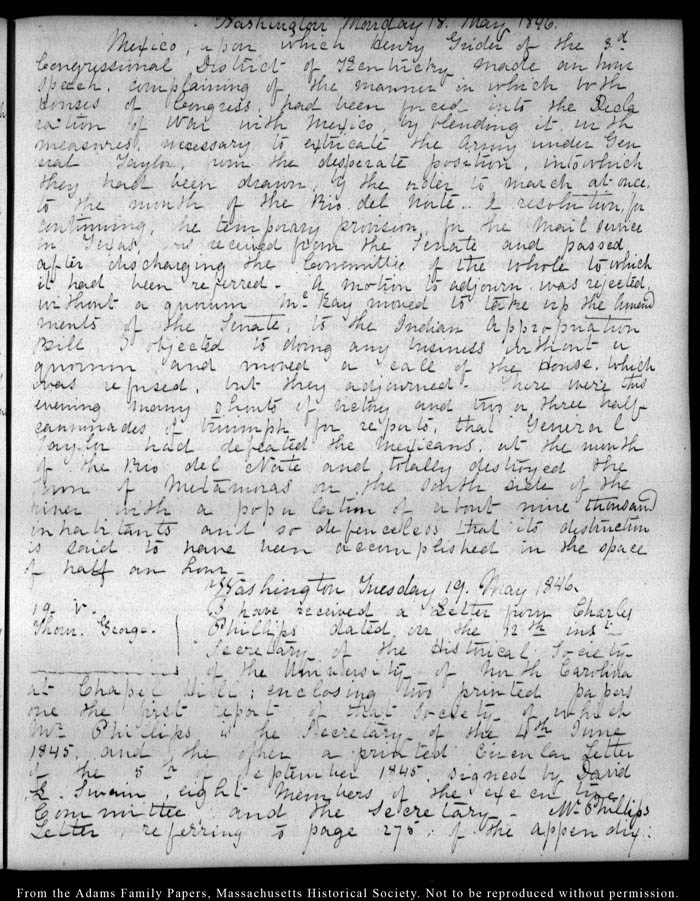 Washington Monday 18. May 1846.
Mexico, upon which Henry Grider of the 3d
Congressional District of Kentucky made an hour
speech. complaining of the manner in which both
Houses of Congress, had been forced into the Decla
ration of War with Mexico, by blending it with
measures, necessary to extricate the Army under Gen
eral Taylor, from the desperate position, into which
they had been drawn, by the order to march at once,
to the mouth of the Rio del Norte. A resolution, for
continuing, the temporary provision, for the Mail service
in Texas, was received from the Senate and passed
after discharging the Committee of the whole to which
it had been referred - A motion to adjourn was rejected,
without a quorum McKay moved to take up the Amend
ments of the Senate, to the Indian Appropriation
Bill I objected to doing any business without a
quorum and moved a call of the House. which
was refused, but they adjourned - There were this
evening many shouts of victory and two or three half
cannonades of triumph for reports, that General
Taylor had defeated the Mexicans, at the mouth
of the Rio del Norte and totally destroyed the
Town of Metamoras on the South side of the
river with a population of about nine thousand
inhabitants and so defenceless that its destruction
is said to have been accomplished in the space
of half an hour -
Washington, Tuesday 19. May 1846.
19. V. I have received a Letter from Charles
Thom. George. Phillips dated on the 12th inst
Secretary of the Historical Society
of the University of North Carolina
at Chapel Hill; enclosing two printed papers
one the first report, of that Society of which
Mr Phillips is the Secretary of the 4th June
1845, and the other a printed Circular Letter
of the 5th of September 1845. signed by David
L. Swain, eight Members of the executive
Committee and the Secretary - Mr Phillips
Letter, referring to page 275. of the appendix:
From the Adams Family Papers, Massachusetts Historical Society. Not to be reproduced without permission.